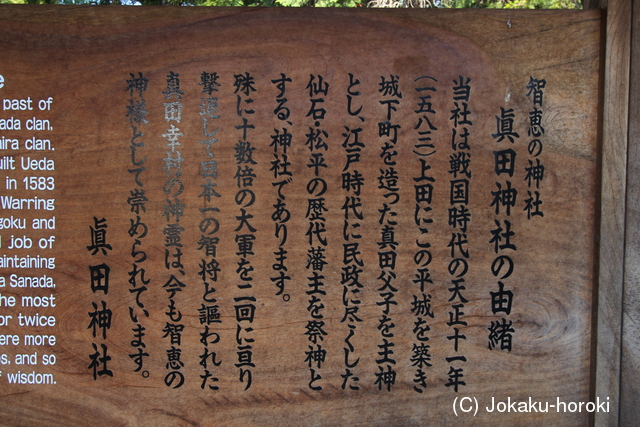 智恵の神社
眞田神社の由緒
当社は戦国時代の天正十一年
(一五八三)上田にこの平城を築き
城下町を造った真田父子を主神
とし、江戸時代に民政に尽くした
仙石・松平の歴代藩主を祭神と
する、神社であります。
殊に十数倍の大軍を二回に亘り
撃退して日本一の智将と謳われた
真田幸村の神霊は、今も智恵の
神様として崇められています。
眞田神社
e
past of
ada clan,
ira clan.
uilt Ueda
in 1583
Warring
goku and
job of
aintaining
a Sanada,
he most
or twice
ere more
s, and so
f wisdom.
(C) Jokaku-horoki